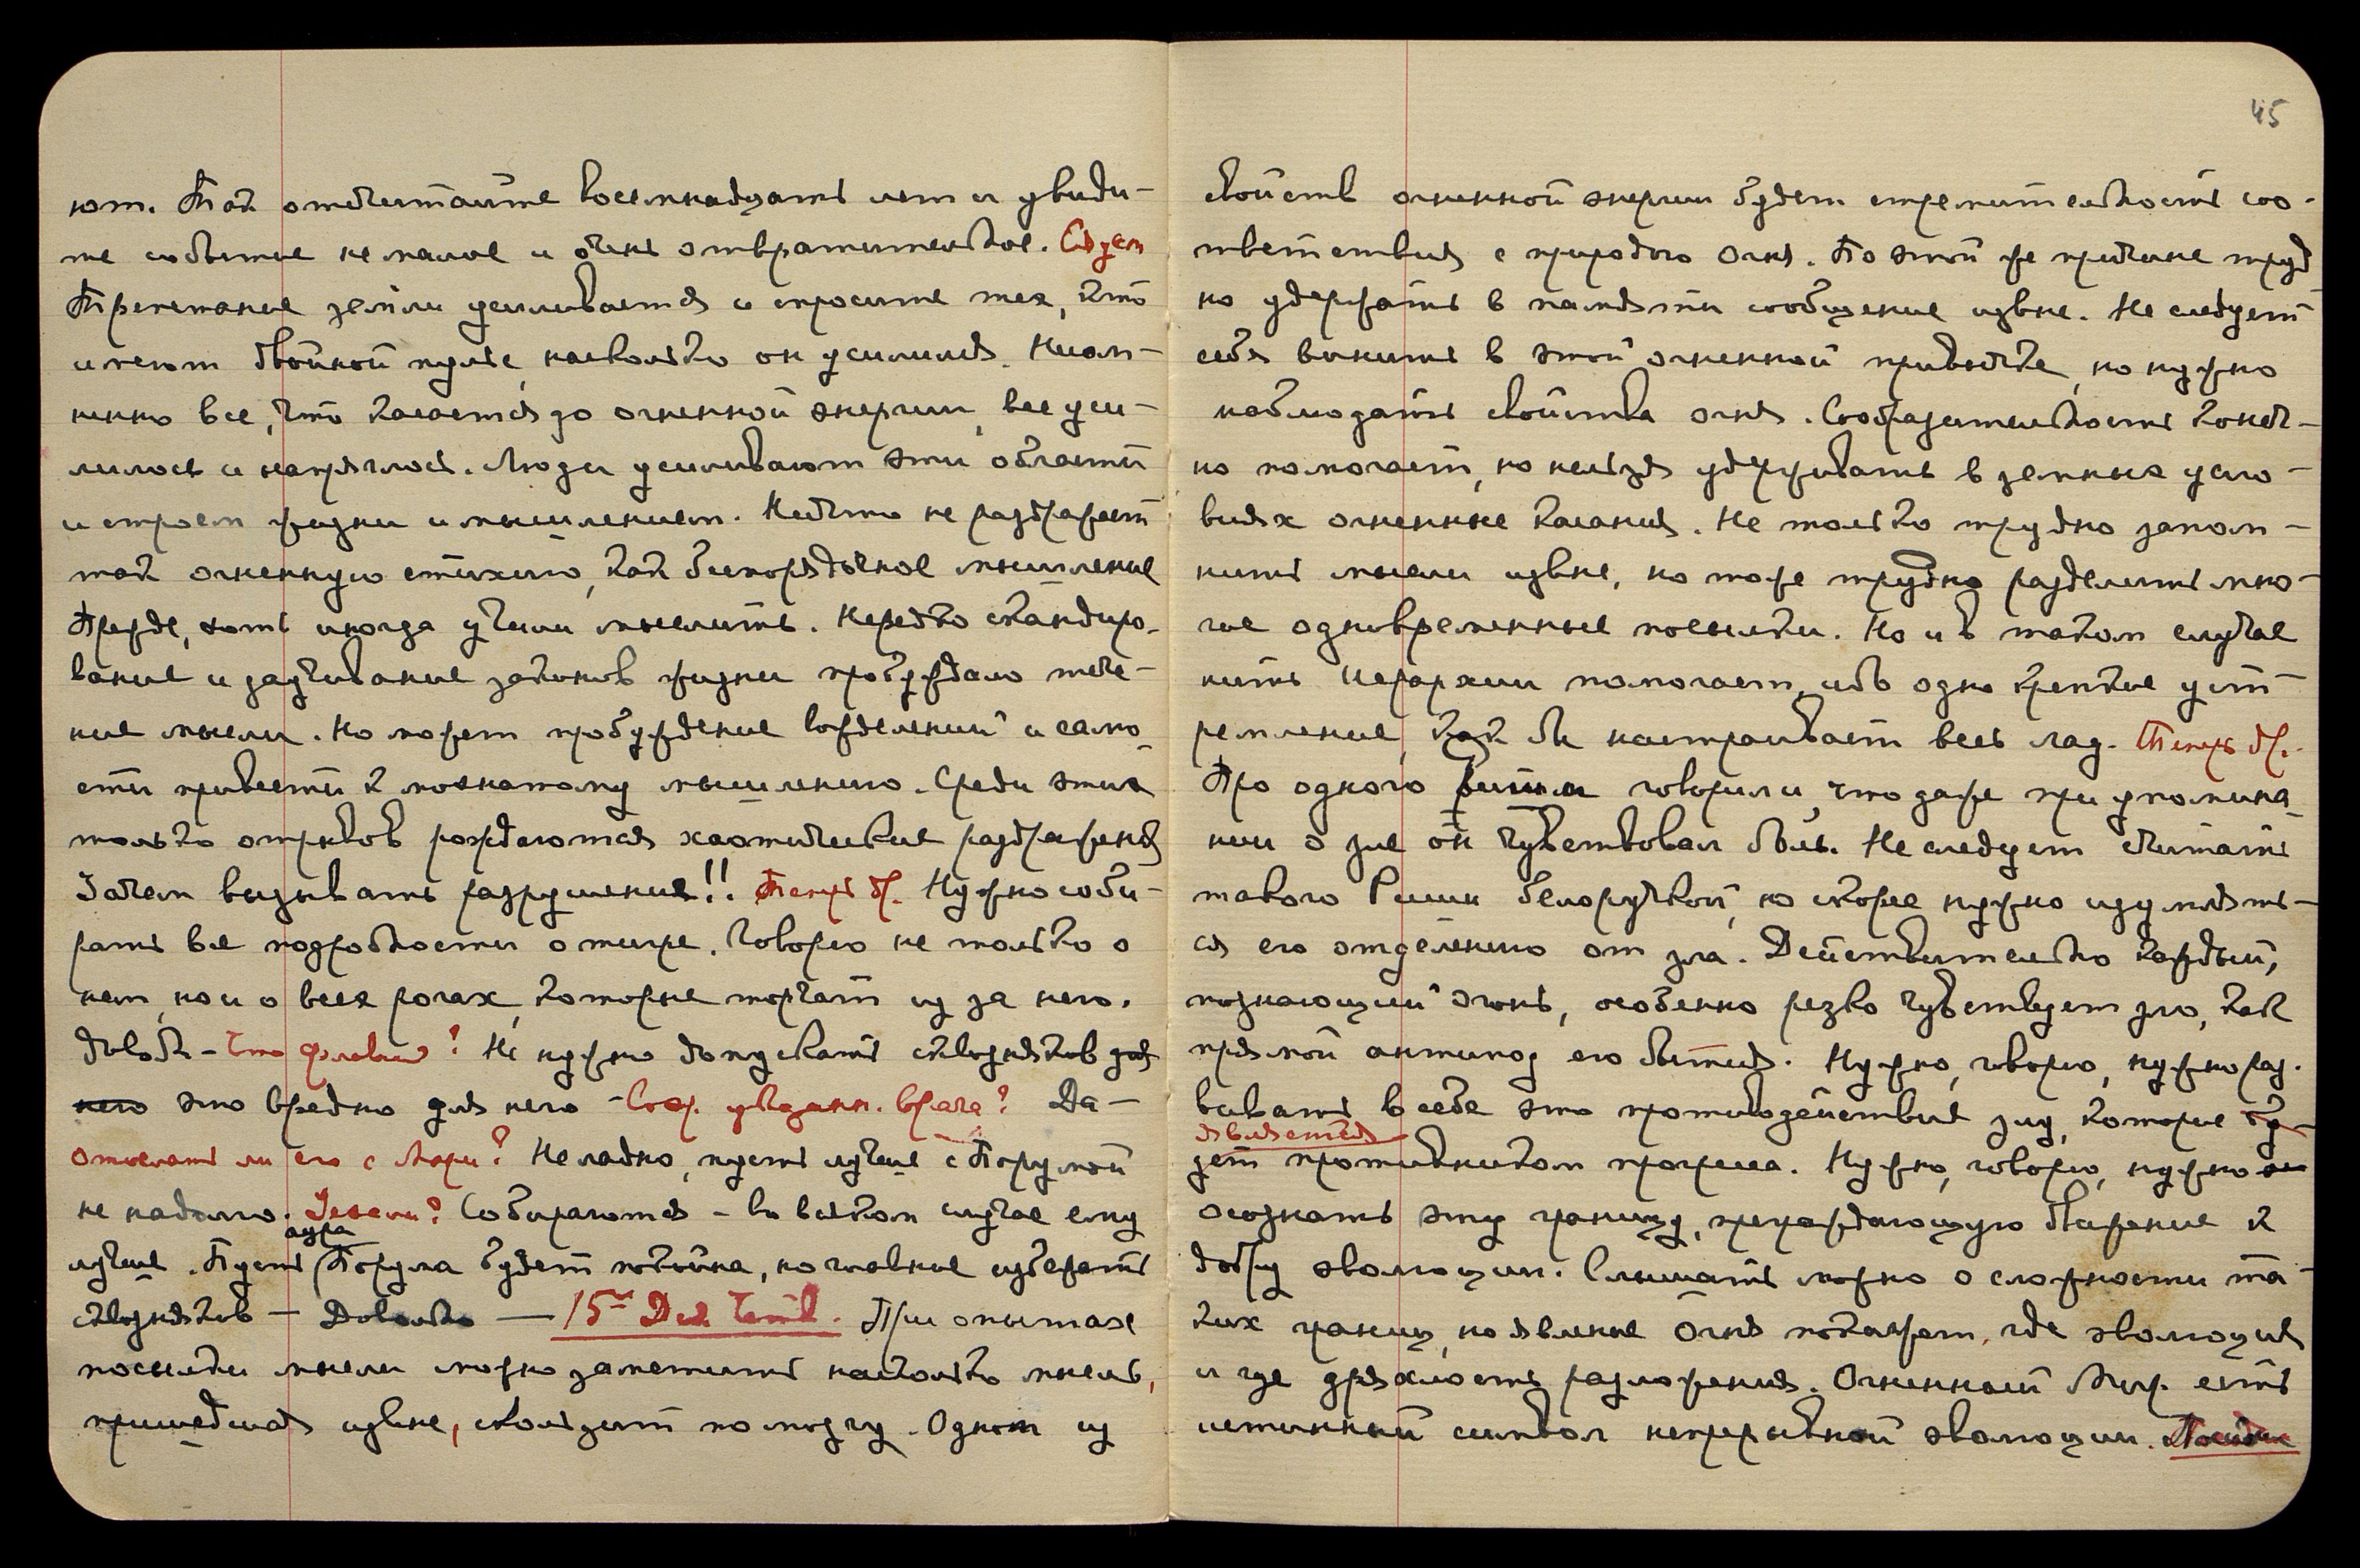 ют. Так отсчитайте восемнадцать лет и увиди-
те событие не малое и очень отвратительное.
Трепетание земли усиливается и спросите тех, кто
имеют двойной пульс, насколько он усилился. Неом-
ненно все, что касается до огненной энергии, все уси-
лилось и напряглось. Люди усиливают эти области
и строем жизни и мышлением. Ничто не раздражает
так огненную стихию, как беспорядочное мышление
Прежде, хоть иногда учили мыслить. Нередко скандиро-
вание и заучивание законов жизни пробуждало тече-
ние мысли. Но может пробуждение вожделений и само
сти привести к мохнатому мышлению. Среди этих
только отрывов рождаются хаотические раздражения
Зачем вызывать разрушения!! Теперь др. Нужно соби-
рать все подробности о тигре. Говорю не только о
нем, но и о всех рогах, которые торчат из за него.
довольно - Что Флавий? Не нужно допускать сквозняков для
него это вредно для него - указан. врача? Да -
Отослать ли его с Мори? Не ладно, пусть лучше с Порумой
не надолго. Уехали? Собираются - во всяком случае ему
аура
лучше. Пусть Порума будет покойна, но главное избегать
сквозняков - Довольно - 15ое Дек Четв. При опытах
посылки мысли можно заметить насколько мысль,
пришедшая извне, скользит по мозгу. Одним из
45
свойств огненной энергии будет стремительность соо-
тветствия с природою Огня. По этой же причине труд
но удержать в памяти сообщение извне. Не следует
себя винить в этой огненной привычке, но нужно
наблюдать свойства огня. Сообразительность конеч-
но помогает, но нельзя удерживать в земных усло-
виях огненные касания. Не только трудно запом-
нить мысли извне, но тоже трудно разделить мно-
гие одновременные посылки. Но и в таком случае
нить Иерархии помогает, ибо одно крепкое уст-
ремление, как бы настраивает весь лад. Теперь др.
Про одного Риши говорили, что даже при упомина
нии о зле он чувствовал боль. Не следует считать
такого Риши белоручкой, но скорее нужно изумлять-
ся его отделению от зла. Действительно каждый,
познающий Огонь, особенно резко чувствует зло, как
прямой антипод его бытия. Нужно, говорю, нужно раз-
вивать в себе это противодействие злу, которое бу-
является
дет противником прогресса. Нужно, говорю, нужно
осознать эту границу, преграждающую движение к
добру эволюции. Слышать можно о сложности та-
ких границ, но явление Огня покажет, где эволюция
и где дряхлость разложения. Огненный Мир есть
истинный символ непрерывной эволюции.